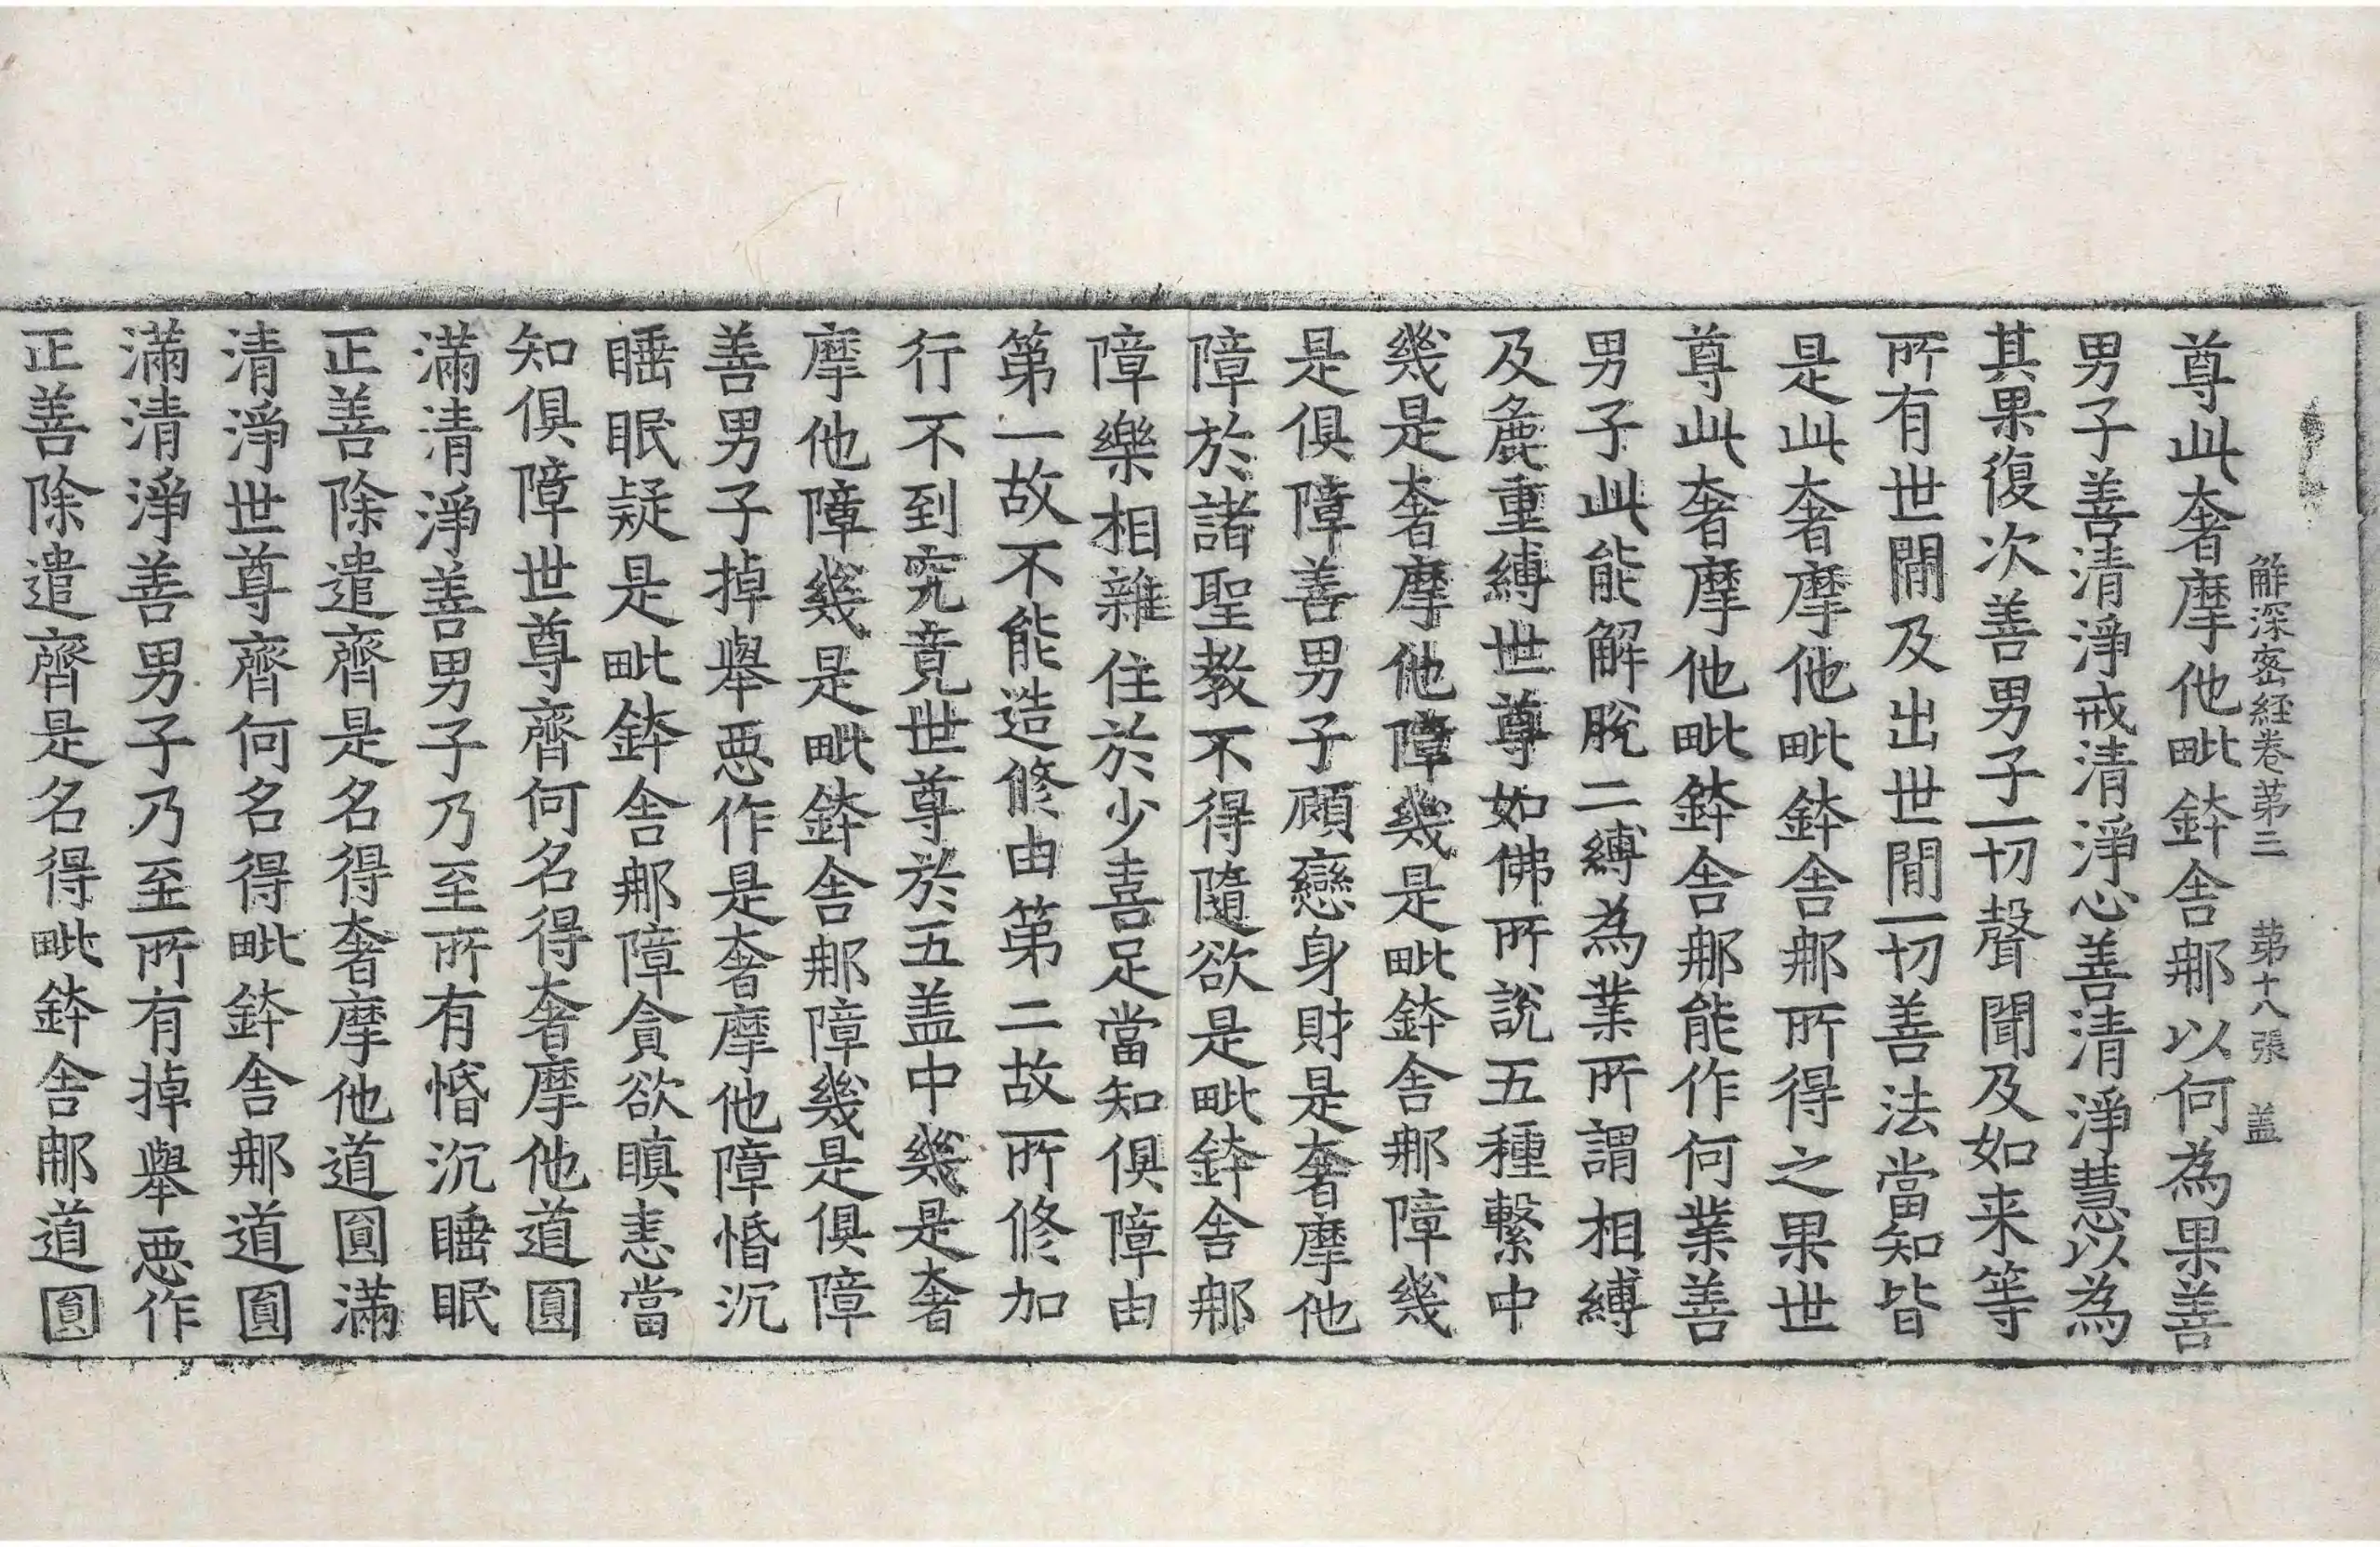 解深密経卷第三 第十八張 盖
尊此奢摩他毗鉢舍那以何為果善
男子善清淨戒清淨心善清淨慧以為
其果復次善男子一切聲聞及如来等
所有世間及出世間一切善法當知皆
是此奢摩他毗鉢舍那所得之果世
尊此奢摩他毗鉢舍那能作何業善
男子此能解脫二縛為業所謂相縛
及麁重縛世尊如佛所說五種繫中
幾是奢摩他障幾是毗鉢舍那障幾
是俱障善男子顧戀身財是奢摩他
障於諸聖教不得隨欲是毗鉢舍那
障樂相雜住於少喜足當知俱障由
第一故不能造修由第二故所修加
行不到究竟世尊於五盖中幾是奢
摩他障幾是毗鉢舍那障幾是俱障
善男子掉舉惡作是奢摩他障惛沉
睡眠疑是毗鉢舍那障貪欲瞋恚當
知俱障世尊齊何名得奢摩他道圓
滿清淨善男子乃至所有惛沉睡眠
正善除遣齊是名得奢摩他道圓滿
清淨世尊齊何名得毗鉢舍那道圓
滿清淨善男子乃至所有掉舉惡作
正善除遣齊是名得毗鉢舍那道圓